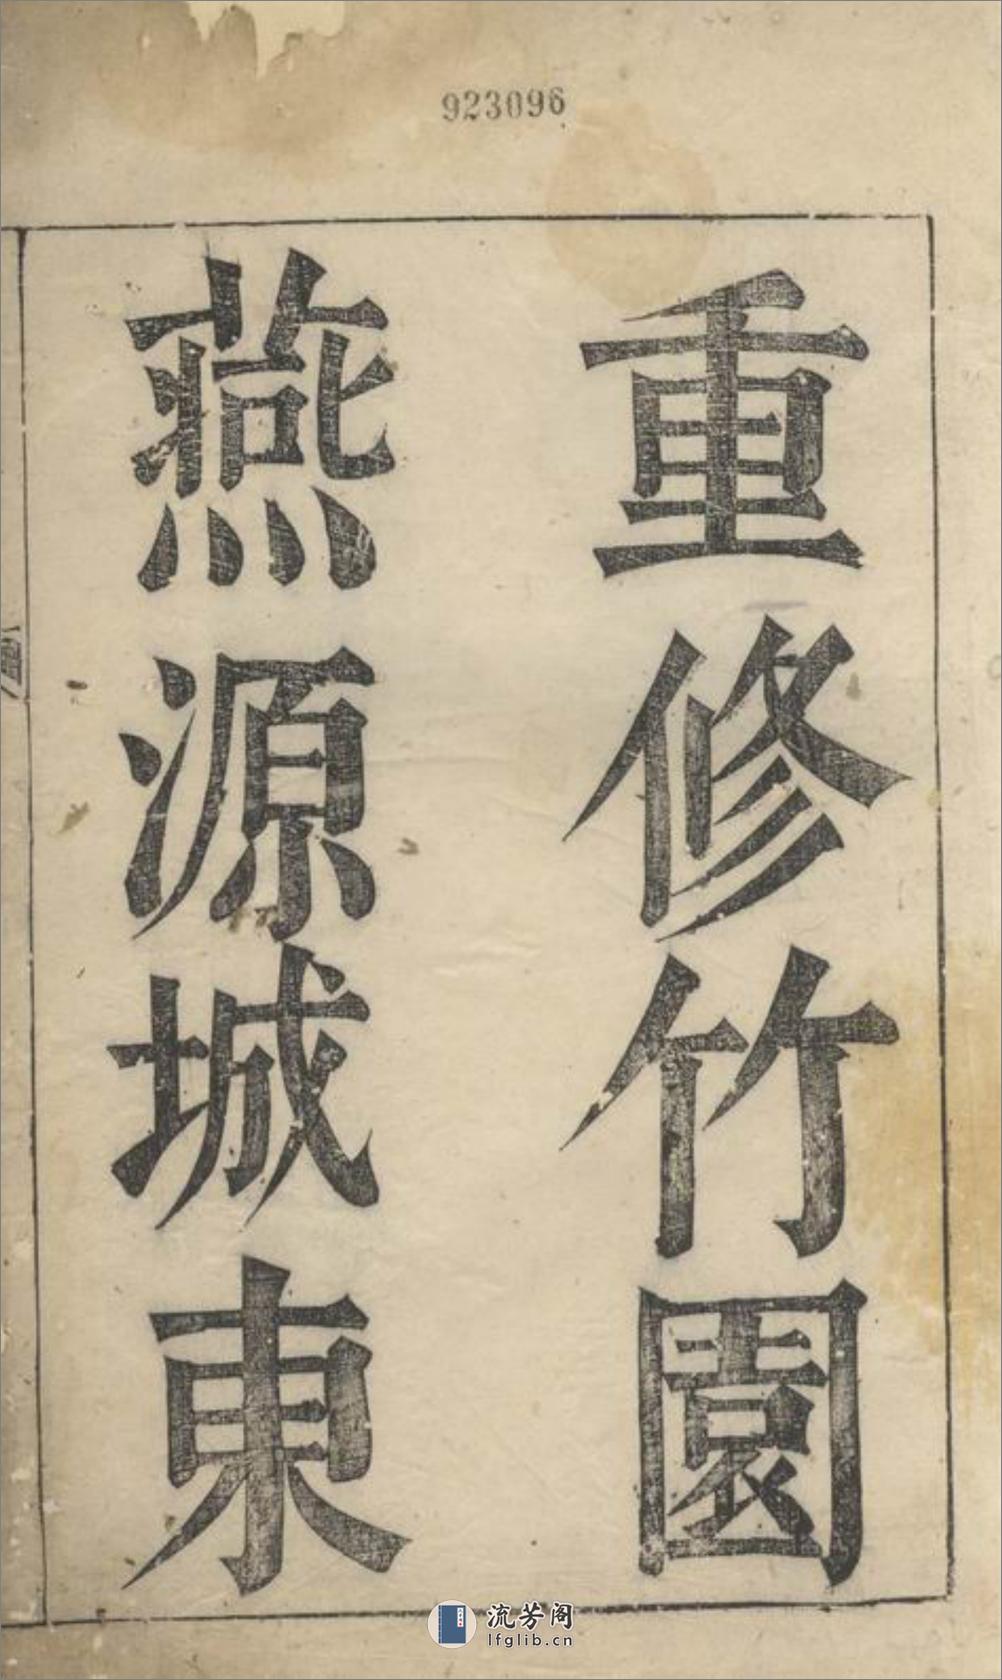 923096
重修竹園
燕源城東
流芳阁
lfglib.cn